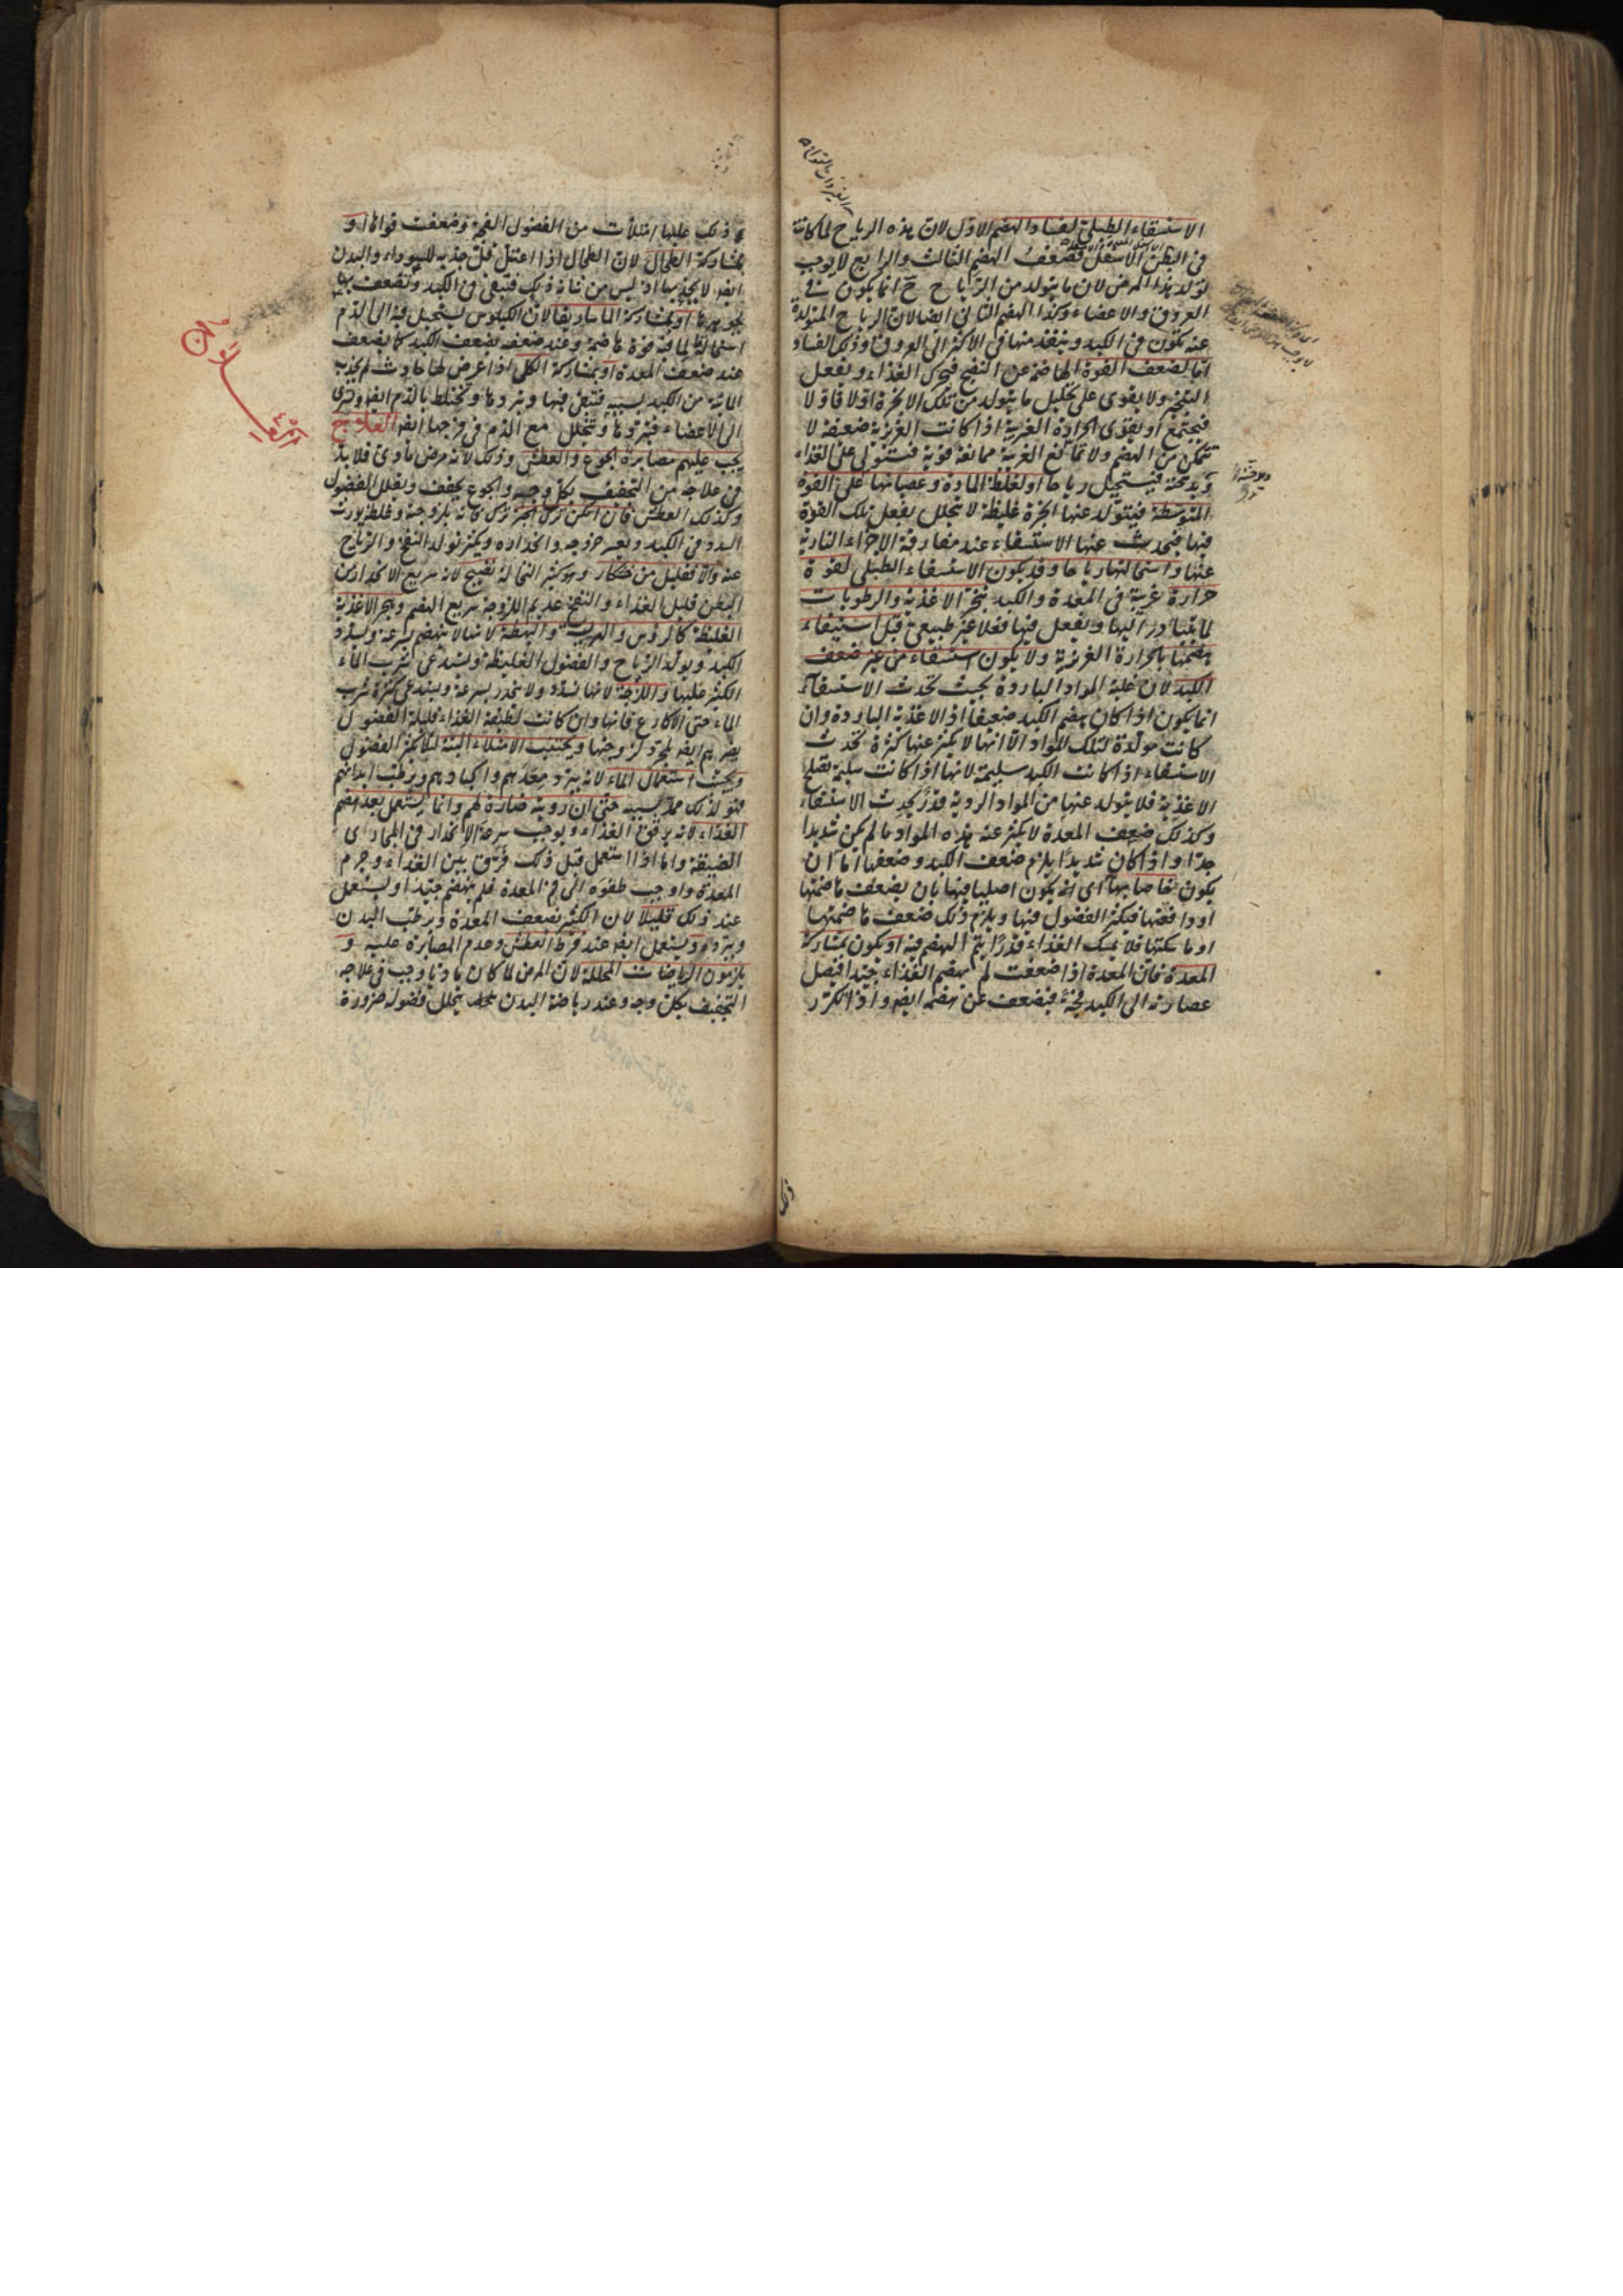 الاستسقاء الطبلي لفساد الهضم الاول لان هذه الرياح لما كانت
في البطن الاسفل فضعف الهضم الثالث والرابع لا يوجب
تولد هذا المرض لان ما يتولد من الرياح ح انما يكون في
العروق والاعضاء وكذا الهضم الثاني ايضا لان الرياح المتولدة
عنه تكون في الكبد وينفذ منها في الاكثر الى العروق وذلك الفساد
اما لضعف القوة الهاضمة عن النضج فيحرك الغذاء ويفعل
التبخير ولا يقوى على تحليل ما يتولد من تلك الابخرة اولا فاولا
فيجتمع او يقوى الحرارة الغريبة اذا كانت الغريزية ضعيفة لا
تتمكن من الهضم ولا تمانع الغريبة ممانعة قوية فتستولي على الغذاء
فيستحيل رياحا او لغلظ المادة وعصيانها على القوة
المتوسطة فيتولد عنها ابخرة غليظة لا تتحلل بفعل تلك القوة
فيها فيحدث عنها الاستسقاء عند مفارقة الاجزاء النارية
عنها واستحالتها رياحا وقد يكون الاستسقاء الطبلي لقوة
حرارة غريبة في المعدة والكبد تبخر الاغذية والرطوبات
لما تبادر اليها وتفعل فيها فعلا غير طبيعي قبل استيفاء
هضمها بالحرارة الغريزية ولا يكون استسقاء من غير ضعف
الكبد لان غلبة المواد الباردة بحيث تحدث الاستسقاء
انما يكون اذا كان هضم الكبد ضعيفا اذ الاغذية الباردة وان
كانت مولدة لتلك المواد الا انها لا يكثر عنها كثرة تحدث
الاستسقاء اذا كانت الكبد سليمة لانها اذا كانت سليمة تصلح
الاغذية فلا يتولد عنها من المواد الردية قدر يحدث الاستسقاء
وكذلك ضعف المعدة لا يكثر عنه هذه المواد ما لم يكن شديدا
جدا واذا كان شديدا يلزم ضعف الكبد وضعفها اما ان
يكون خاصا بها اى انه يكون اصليا فيها بان يضعف هاضمتها
او دافعتها فيكثر الفضول فيها ويلزم ذلك ضعف هاضمتها
او ماسكتها فلا يمسك الغذاء قدرا يتم الهضم فيه او يكون بمشاركة
المعدة فان المعدة اذا ضعفت لم يهضم الغذاء جيدا فيصل
عصارته الى الكبد فجة فيضعف عن هضمه ايضا واذا تكرر
ذلك
ذلك عليها امتلأت من الفضول الفجة وضعفت قواها او
بمشاركة الطحال لان الطحال اذا اعتل قل جذبه للسوداء والبدن
ايضا لا يجذبها اذ ليس من شانه ذلك فتبقى في الكبد وتضعف بها
او بمشاركة الماساريقا لان الكيلوس يستحيل فيه الى الدم
استحالة لما فيه قوة هاضمة وعند ضعفه يضعف الكبد كما يضعف
عند ضعف المعدة او بمشاركة الكلى اذا عرض لها حادث لم يجذب
المائية من الكبد بسببه فتبقى فيها وتبردها وتختلط بالدم ايضا وتسري
الى الاعضاء فتبردها وتتخلل مع الدم في فرجها ايضا العلاج
يجب عليهم مصابرة الجوع والعطش وذلك لانه مرض مادي فلا بد
في علاجه من التجفيف بكل وجه والجوع يجفف ويقلل الفضول
وكذلك العطش فان امكن ترك الخبز ترك فانه بلزوجته وغلظه يورث
السدد في الكبد ويعسر خروجه وانحداره ويكثر تولد النفخ والرياح
عنه والا فقليل من خشكار وهو كثير النخالة نضيج لانه سريع الانحدار من
البطن قليل الغذاء والنفخ عديم اللزوجة سريع الهضم ويهجر الاغذية
الغليظة كالرؤس والهريسة والبهطة لانها لا ينهضم بسرعة ويسدد
الكبد ويولد الرياح والفضول الغليظة ويستدعى شرب الماء
الكثير عليها واللزجة لانها تسدد ولا تنحدر بسرعة ويستدعى كثرة شرب
الماء حتى الاكارع فانها وان كانت لطيفة الغذاء قليلة الفضول
يضرهم ايضا لمجرد لزوجتها ويجتنب الامتلاء البتة لئلا يكثر الفضول
ويجتنب استعمال الماء لانه يبرد معدهم واكبادهم ويرطب ابدانهم
فهو لذلك ممد بسببه حتى ان رويته ضارة لهم وانما يستعمل بعد هضم
الغذاء لانه يرقق الغذاء ويوجب سرعة الانحدار في المجارى
الضيقة واما اذا استعمل قبل ذلك فرق بين الغذاء وجرم
المعدة واوجب طفوه الى فم المعدة فلم ينهضم جيدا ويستعمل
عند ذلك قليلا لان الكثير يضعف المعدة ويرطب البدن
ويبرده ويستعمل ايضا عند فرط العطش وعدم المصابرة عليه و
يلزمون الرياضات المحللة لان المرض لما كان ماديا وجب في علاجه
التجفيف بكل وجه وعند رياضة البدن يتحلل فضوله ضرورة